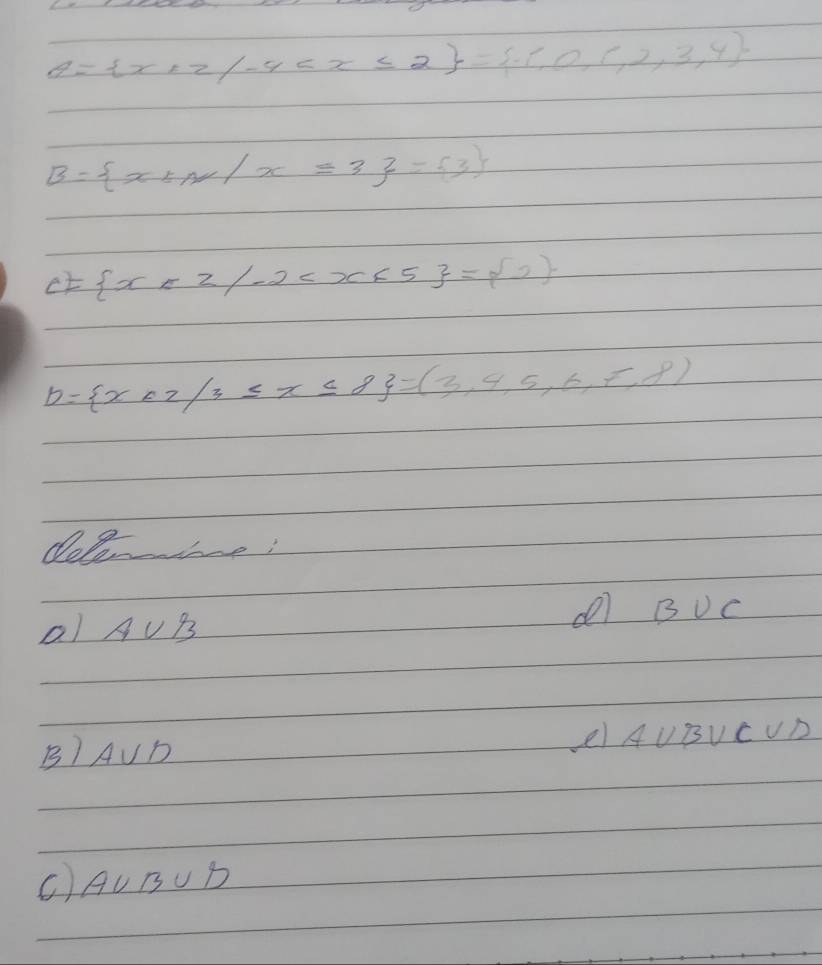 A={x ∈ Z/-4 < x ≤ 2}={-1, 0, 1, 2, 3, 4}
B={x ∈ N/x = 3}={3}
C={x ∈ Z/-2 < x < 5}={2}
D={x ∈ Z/3 ≤ x ≤ 8}=(3, 4, 5, 6, 7, 8)
determine:
a) A∪B d) B∪C
B) A∪D e) A∪B∪C∪D
C) A∪B∪D